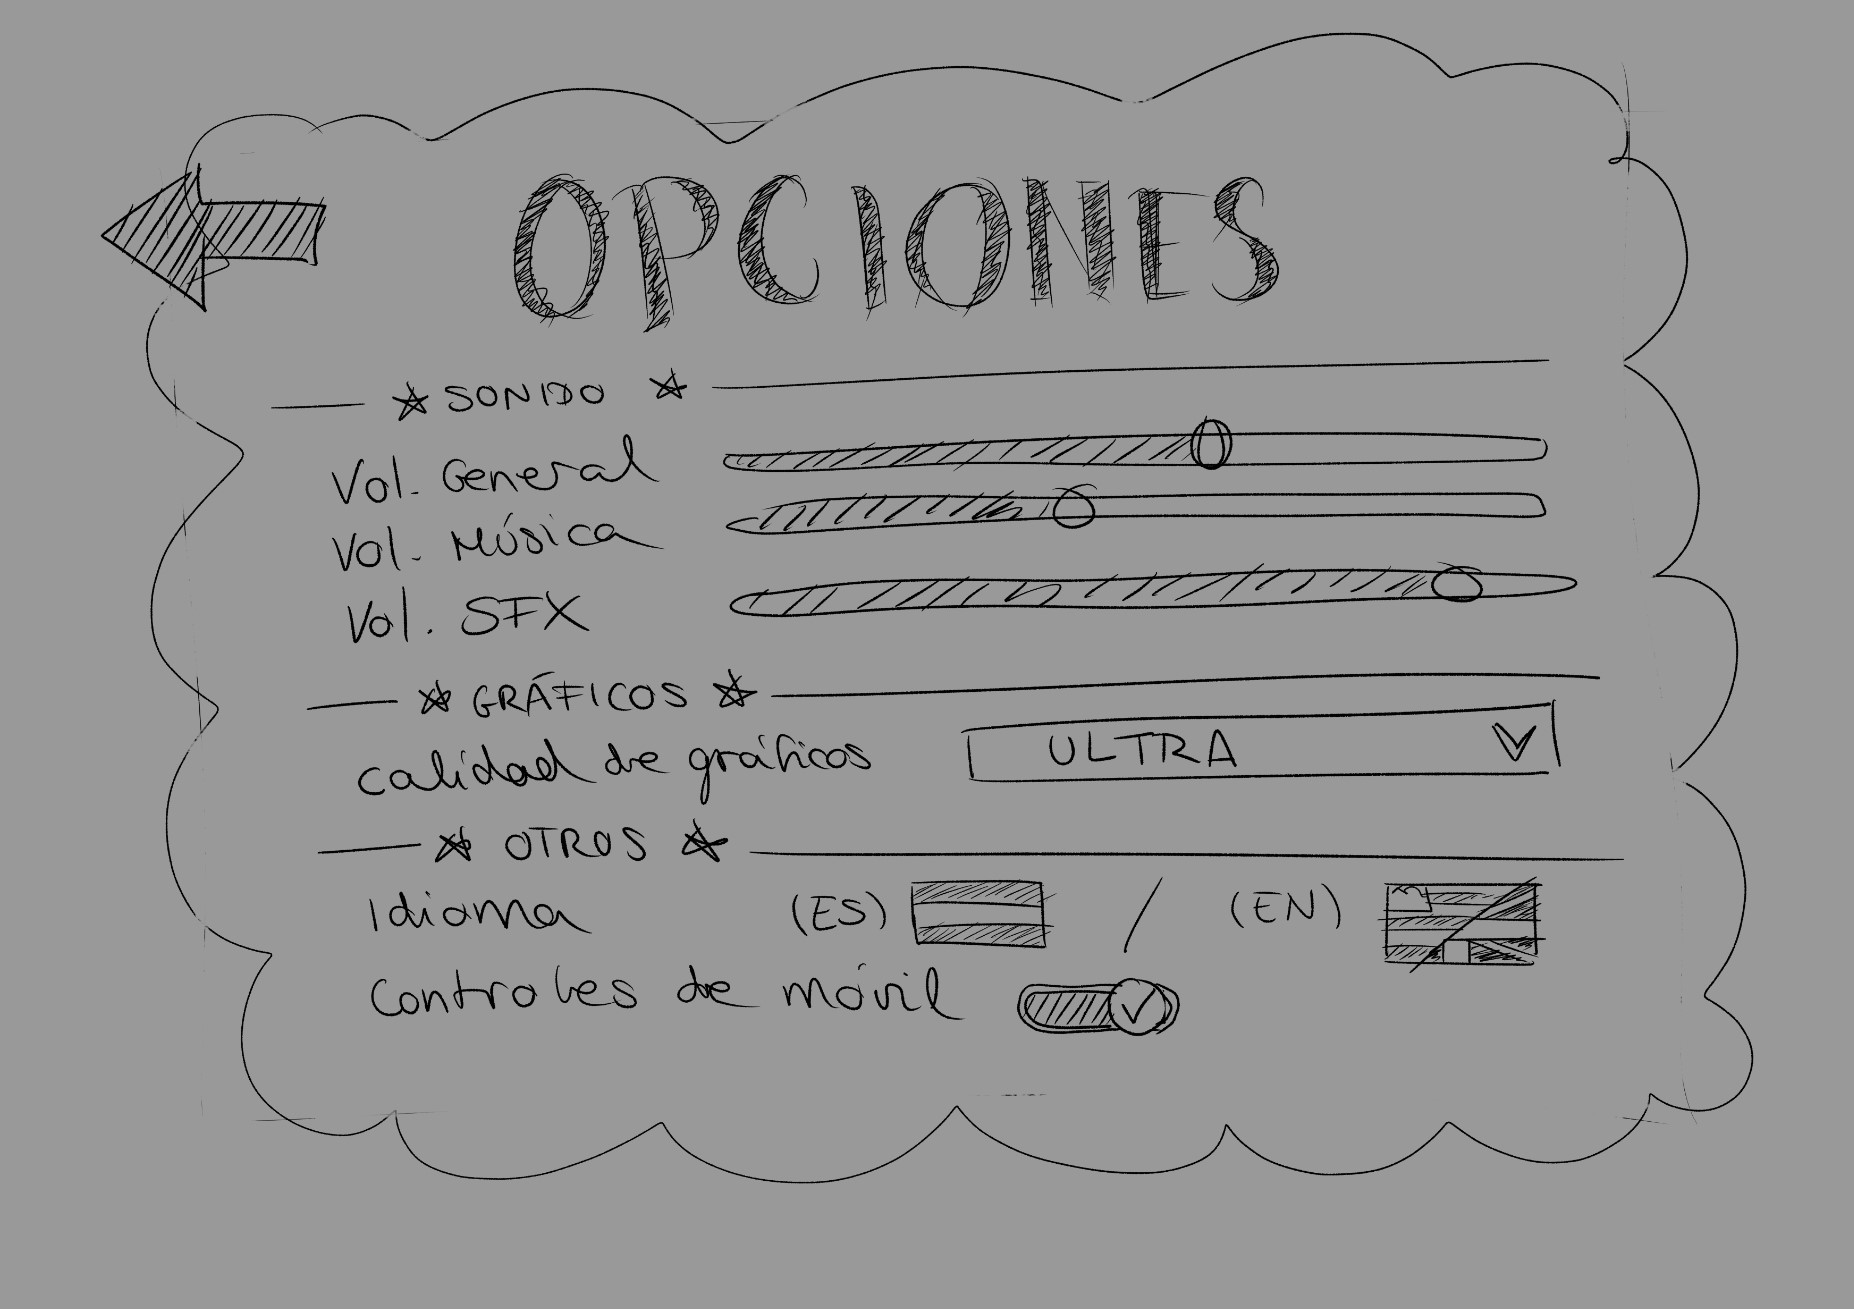 OPCIONES
SONIDO
Vol. General
Vol. Música
Vol. SFX
GRÁFICOS
calidad de gráficos ULTRA
OTROS
Idioma (ES) / (EN)
Controles de móvil